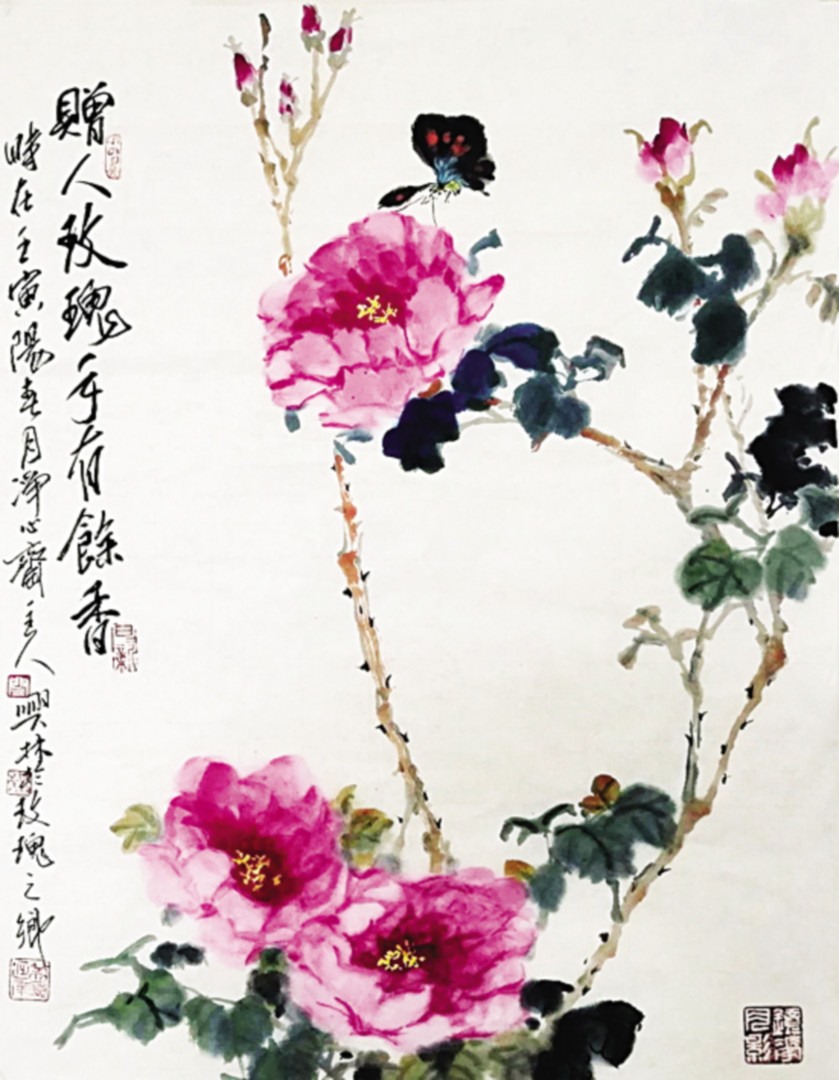 贈人玫瑰手有餘香
時在壬寅陽春月淨心齋主人
興林於玫瑰之鄉